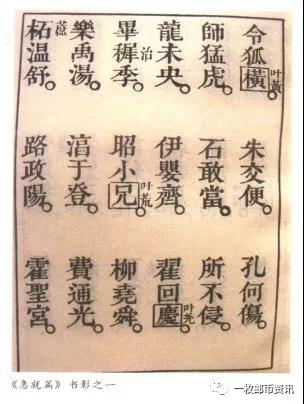 令狐橫叶黃。朱交便。孔何傷。
師猛虎。石敢當。所不侵。
龍未央。伊嬰齊。翟回慶叶羌。
畢穉治季。昭小兄叶荒。柳堯舜。
樂禹湯。湻于登。費通光。
柘蔗温舒。路政陽。霍聖宮。
《急就篇》书影之一
一枚邮币资讯